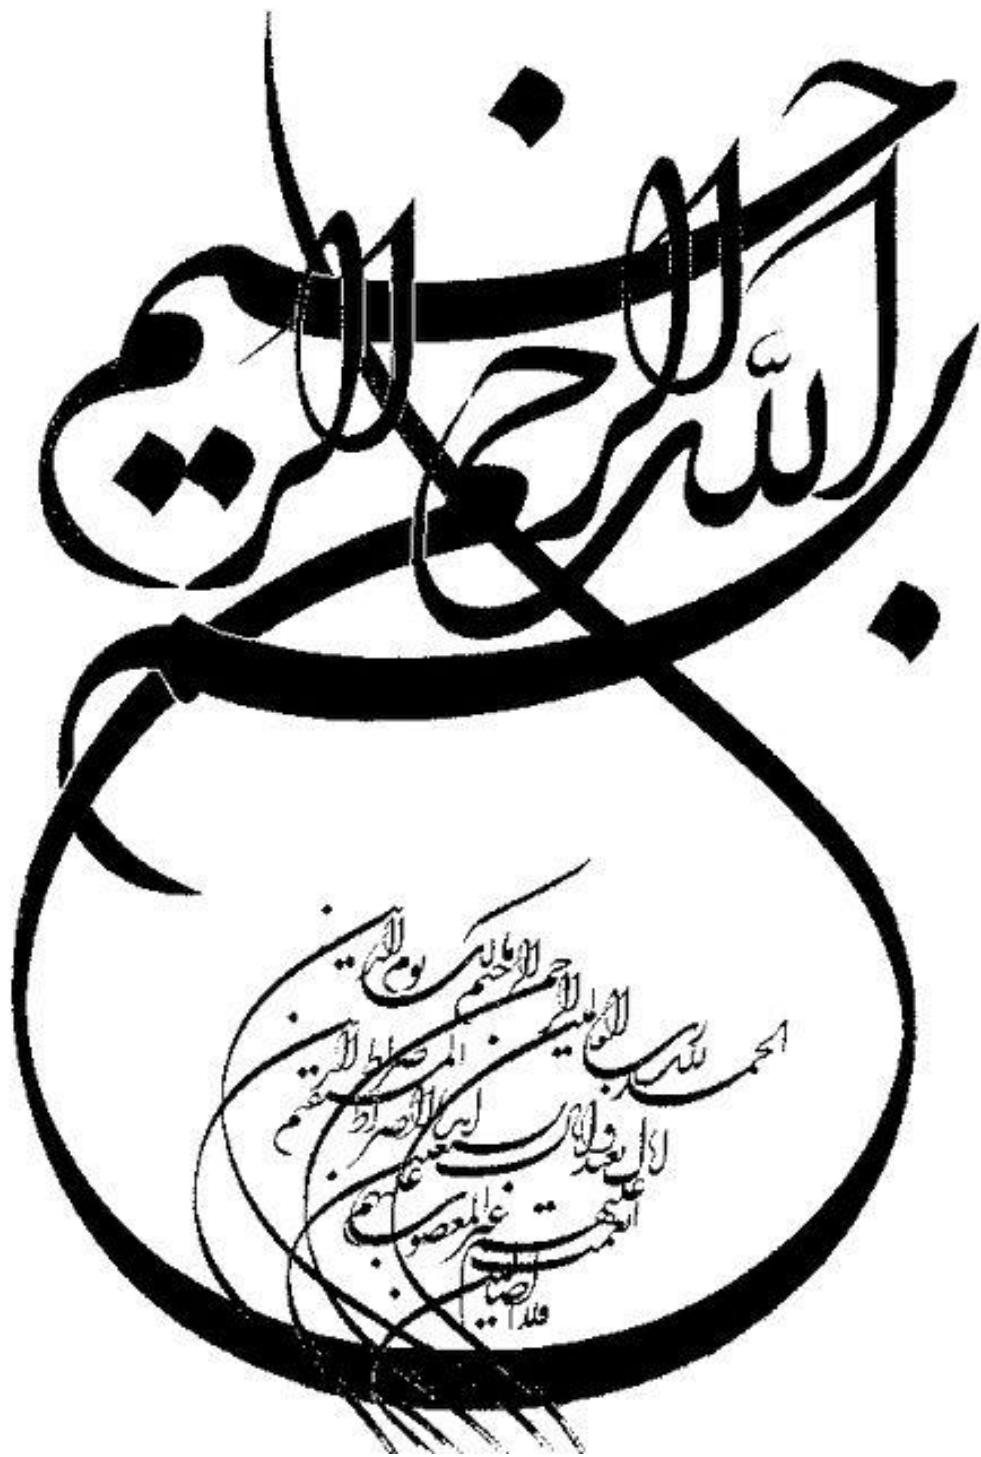 بسم الله الرحمن الرحيم
الحمد لله رب العالمين الرحمن الرحيم مالك يوم الدين
اياك نعبد واياك نستعين اهدنا الصراط المستقيم صراط الذين
انعمت عليهم غير المغضوب عليهم ولا الضالين